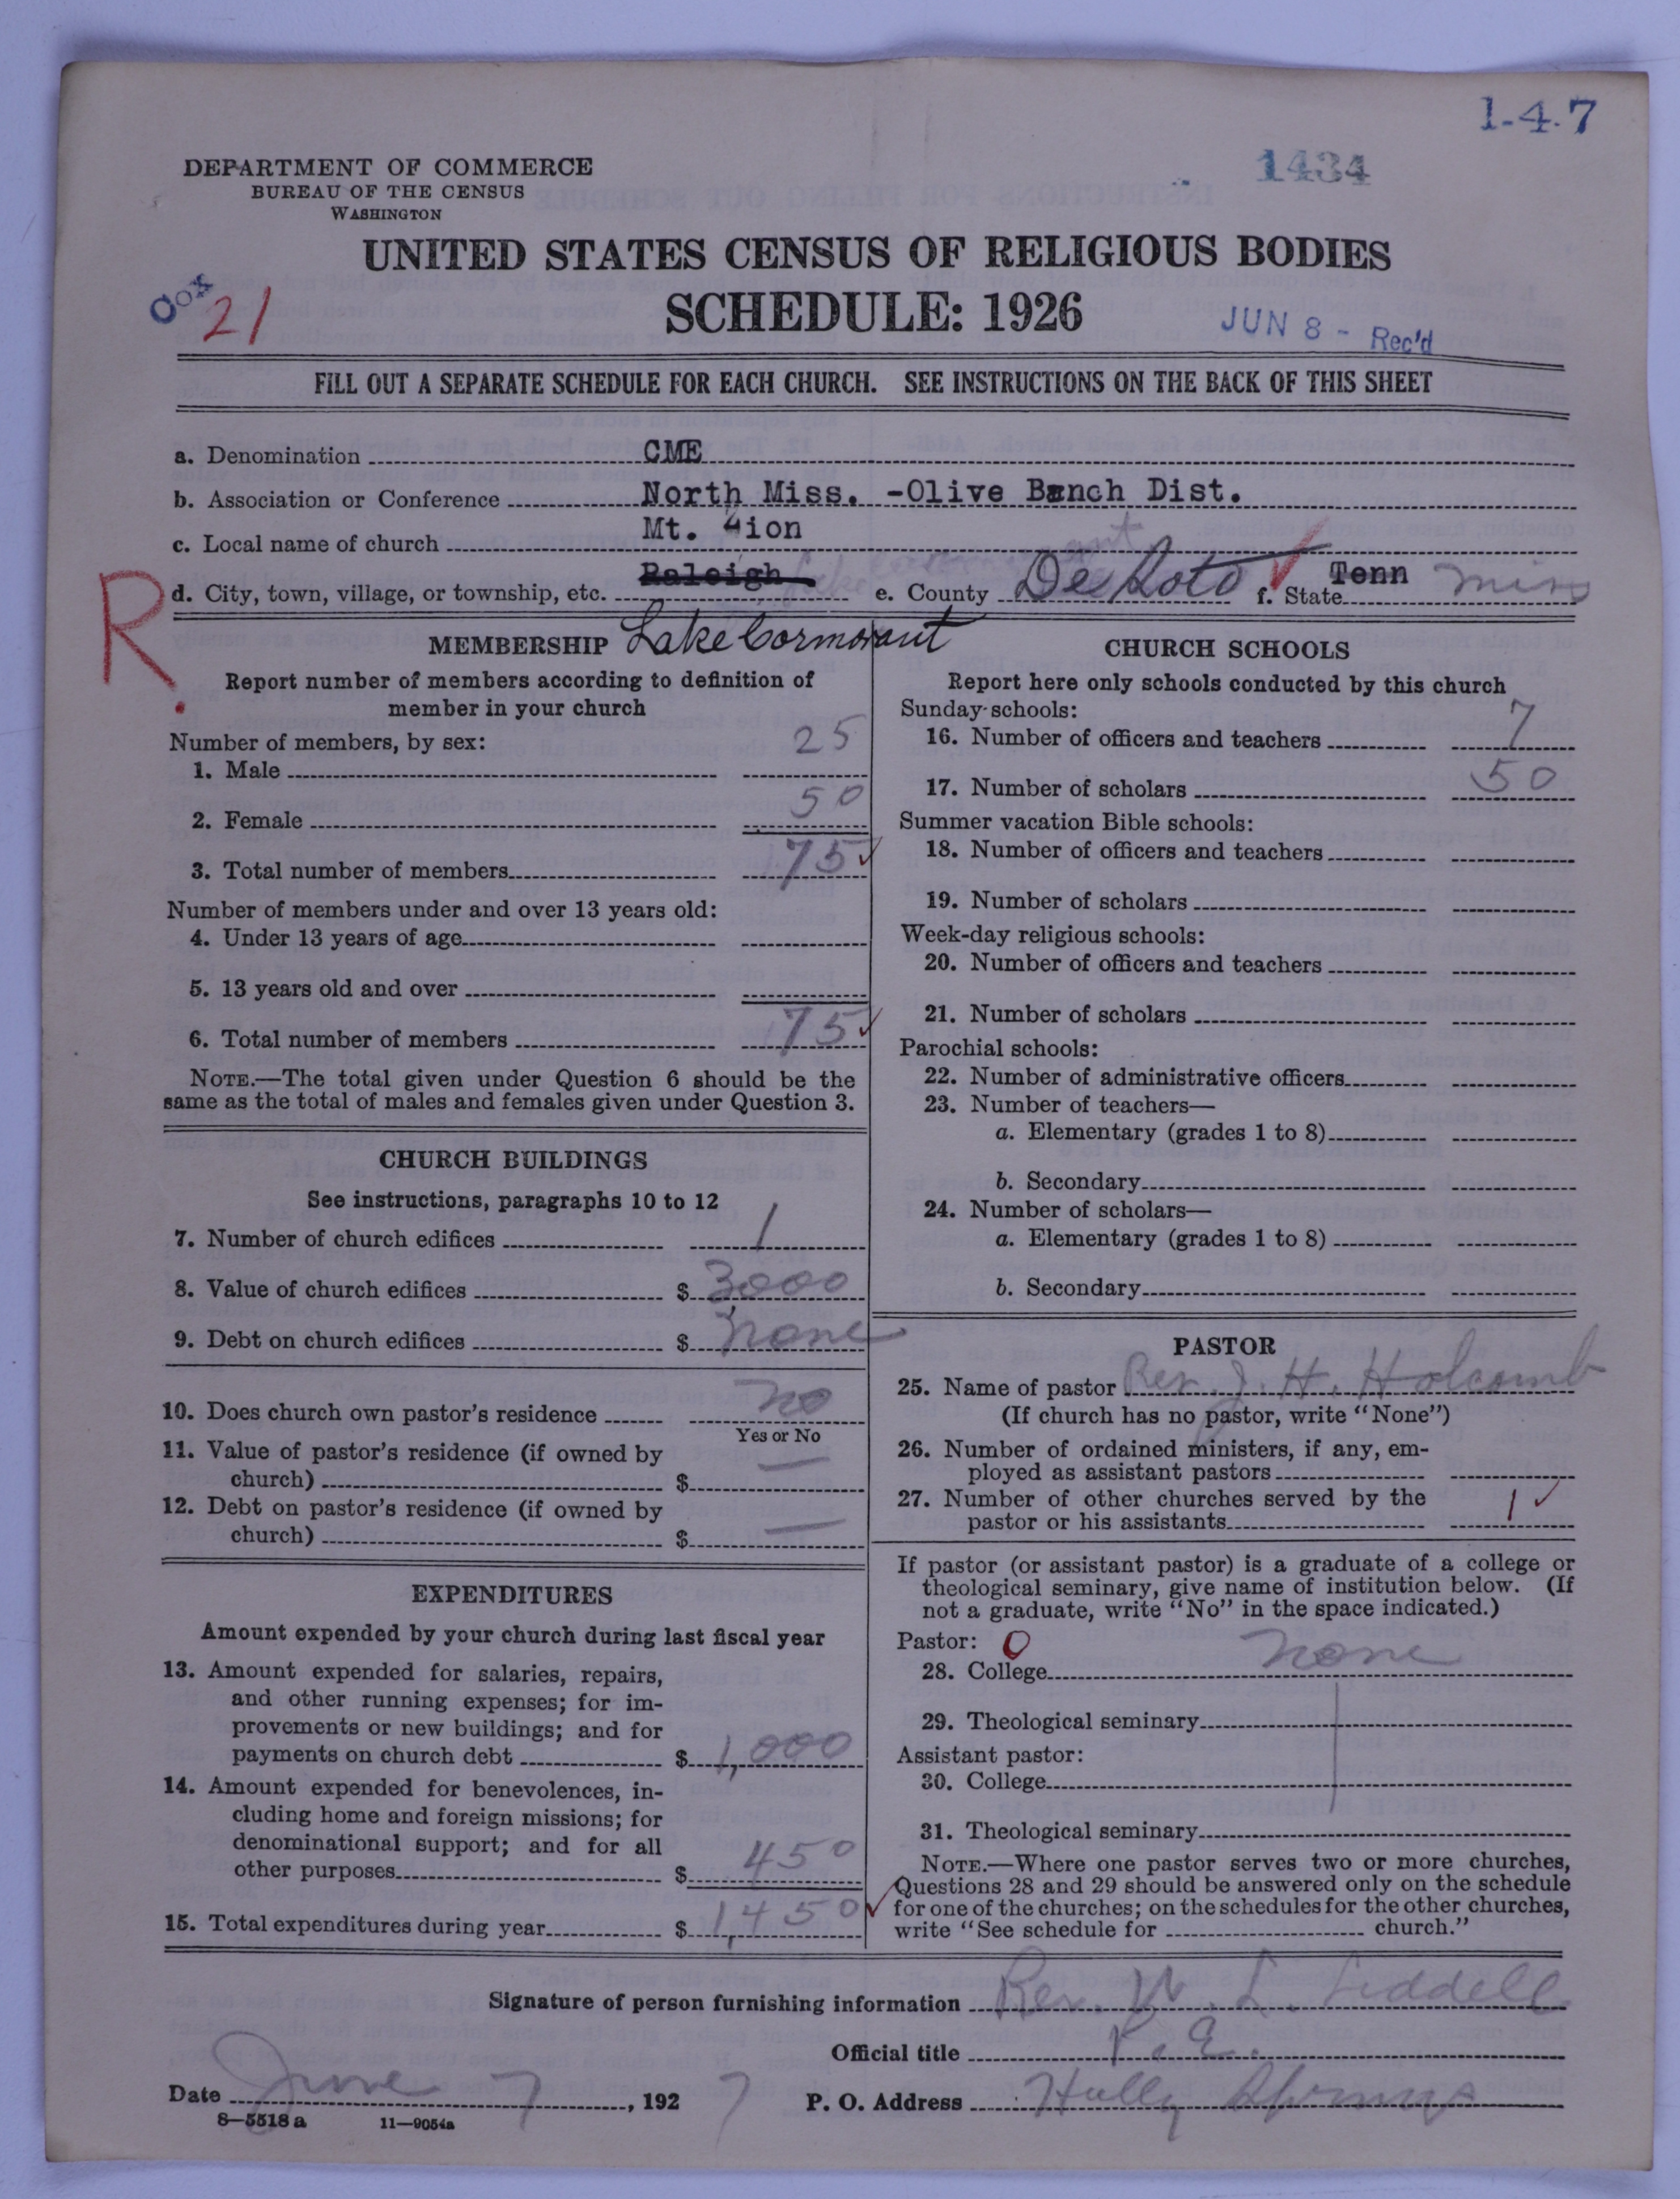 1-4-7
1434
DEPARTMENT OF COMMERCE
BUREAU OF THE CENSUS
WASHINGTON
UNITED STATES CENSUS OF RELIGIOUS BODIES
Cox
21
SCHEDULE: 1926
JUN 8 - Rec'd
FILL OUT A SEPARATE SCHEDULE FOR EACH CHURCH. SEE INSTRUCTIONS ON THE BACK OF THIS SHEET
a. Denomination CME
b. Association or Conference North Miss. -Olive Banch Dist.
c. Local name of church Mt. Zion
d. City, town, village, or township, etc. Raleigh e. County De Soto f. State Tenn Miss
R.
Lake Cormorant
MEMBERSHIP
Report number of members according to definition of
member in your church
Number of members, by sex:
1. Male 25
2. Female 50
3. Total number of members 75
Number of members under and over 13 years old:
4. Under 13 years of age
5. 13 years old and over
6. Total number of members 75
NOTE.—The total given under Question 6 should be the
same as the total of males and females given under Question 3.
CHURCH BUILDINGS
See instructions, paragraphs 10 to 12
7. Number of church edifices 1
8. Value of church edifices $ 3000
9. Debt on church edifices $ none
10. Does church own pastor's residence no
Yes or No
11. Value of pastor's residence (if owned by
church) $ —
12. Debt on pastor's residence (if owned by
church) $ —
EXPENDITURES
Amount expended by your church during last fiscal year
13. Amount expended for salaries, repairs,
and other running expenses; for im-
provements or new buildings; and for
payments on church debt $ 1,000
14. Amount expended for benevolences, in-
cluding home and foreign missions; for
denominational support; and for all
other purposes $ 450
15. Total expenditures during year $ 1,450
CHURCH SCHOOLS
Report here only schools conducted by this church
Sunday schools:
16. Number of officers and teachers 7
17. Number of scholars 50
Summer vacation Bible schools:
18. Number of officers and teachers
19. Number of scholars
Week-day religious schools:
20. Number of officers and teachers
21. Number of scholars
Parochial schools:
22. Number of administrative officers
23. Number of teachers—
a. Elementary (grades 1 to 8)
b. Secondary
24. Number of scholars—
a. Elementary (grades 1 to 8)
b. Secondary
PASTOR
25. Name of pastor Rev. J. H. Holcomb
(If church has no pastor, write "None")
26. Number of ordained ministers, if any, em-
ployed as assistant pastors
27. Number of other churches served by the
pastor or his assistants 1
If pastor (or assistant pastor) is a graduate of a college or
theological seminary, give name of institution below. (If
not a graduate, write "No" in the space indicated.)
Pastor: O
28. College none
29. Theological seminary
Assistant pastor:
30. College
31. Theological seminary
NOTE.—Where one pastor serves two or more churches,
Questions 28 and 29 should be answered only on the schedule
for one of the churches; on the schedules for the other churches,
write "See schedule for church."
Signature of person furnishing information Rev. W. L. Liddell
Official title P. E.
Date June 7, 1927 P. O. Address Holly Springs
8—5518 a 11—9054a